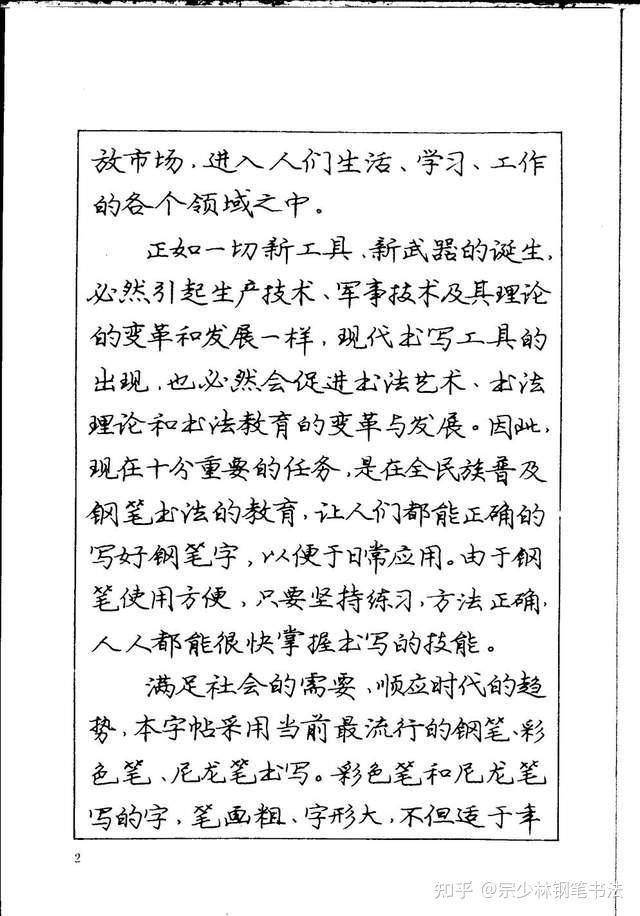 放市场，进入人们生活、学习、工作
的各个领域之中。
正如一切新工具、新武器的诞生，
必然引起生产技术、军事技术及其理论
的变革和发展一样，现代书写工具的
出现，也必然会促进书法艺术、书法
理论和书法教育的变革与发展。因此，
现在十分重要的任务，是在全民族普及
钢笔书法的教育，让人们都能正确的
写好钢笔字，以便于日常应用。由于钢
笔使用方便，只要坚持练习，方法正确，
人人都能很快掌握书写的技能。
满足社会的需要、顺应时代的趋
势，本字帖采用当前最流行的钢笔、彩
色笔、尼龙笔书写。彩色笔和尼龙笔
写的字，笔画粗、字形大，不但适于丰
2
知乎 @宗少林钢笔书法